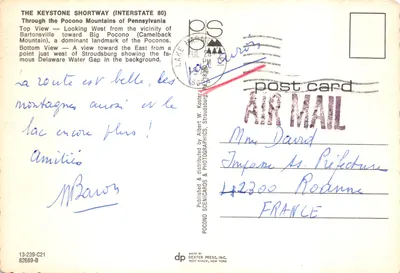 THE KEYSTONE SHORTWAY (INTERSTATE 80)
Through the Pocono Mountains of Pennsylvania
Top View — Looking from the vicinity of
Bartonsville toward Big Pocono (Camelback
Mountain), a dominant landmark of the Poconos.
Bottom View — A view toward the East from a
point just west of Stroudsburg showing the fa-
mous Delaware Water Gap in the background.
La route est belle, les
montagnes aussi et le
lac encore plus!
Amitiés
M Baron
13-239-C21
82669-B
Published & distributed by Albert W.
POCONO SCENICARDS & PHOTOGRAPHICS, Stroudsburg
ps
p
LAKE
par avion
post card
AIR MAIL
Mme David
Impasse Ss Préfecture
42300 Roanne
FRANCE
dp
MADE BY
DEXTER PRESS, INC.
WEST NYACK, NEW YORK